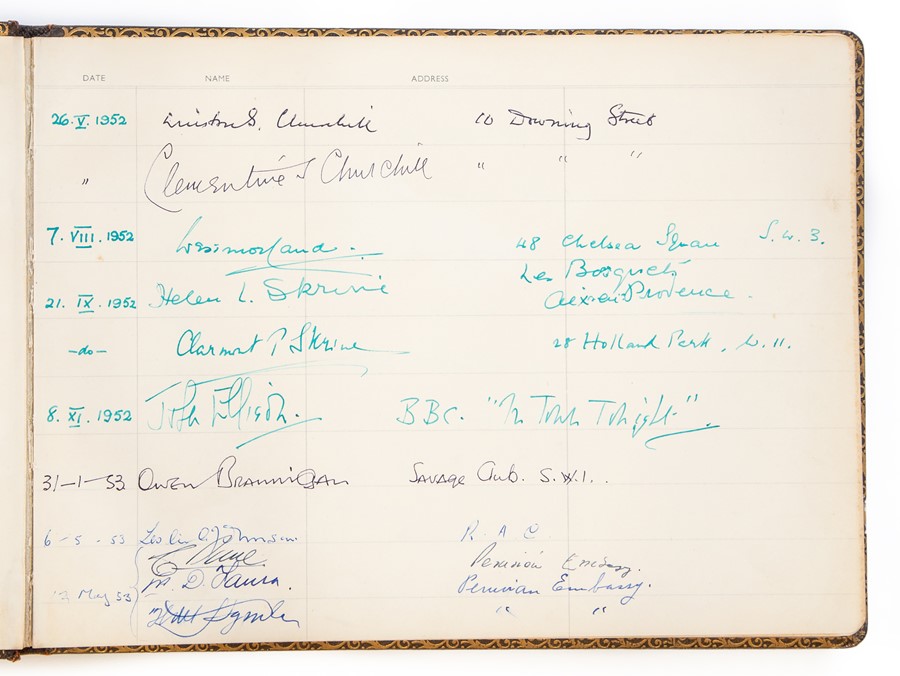 DATE NAME ADDRESS
26. V. 1952 Winston S. Churchill 10 Downing Street
" Clementine S Churchill " " "
7. VIII. 1952 Westmorland. 48 Chelsea Square S.W.3.
Les Bosquets
21. IX. 1952 Helen L. Skrine Aix-en-Provence.
-do- Clarmont P Skrine 28 Holland Park, W.11.
8. XI. 1952 John Ellison. BBC. "In Town Tonight"
31-1-53 Owen Brannigan Savage Club. S.W.1..
6-5-53 Leslie Johnson R.A.C.
Embassy.
M. D. Peruvian Embassy.
May 53 " "